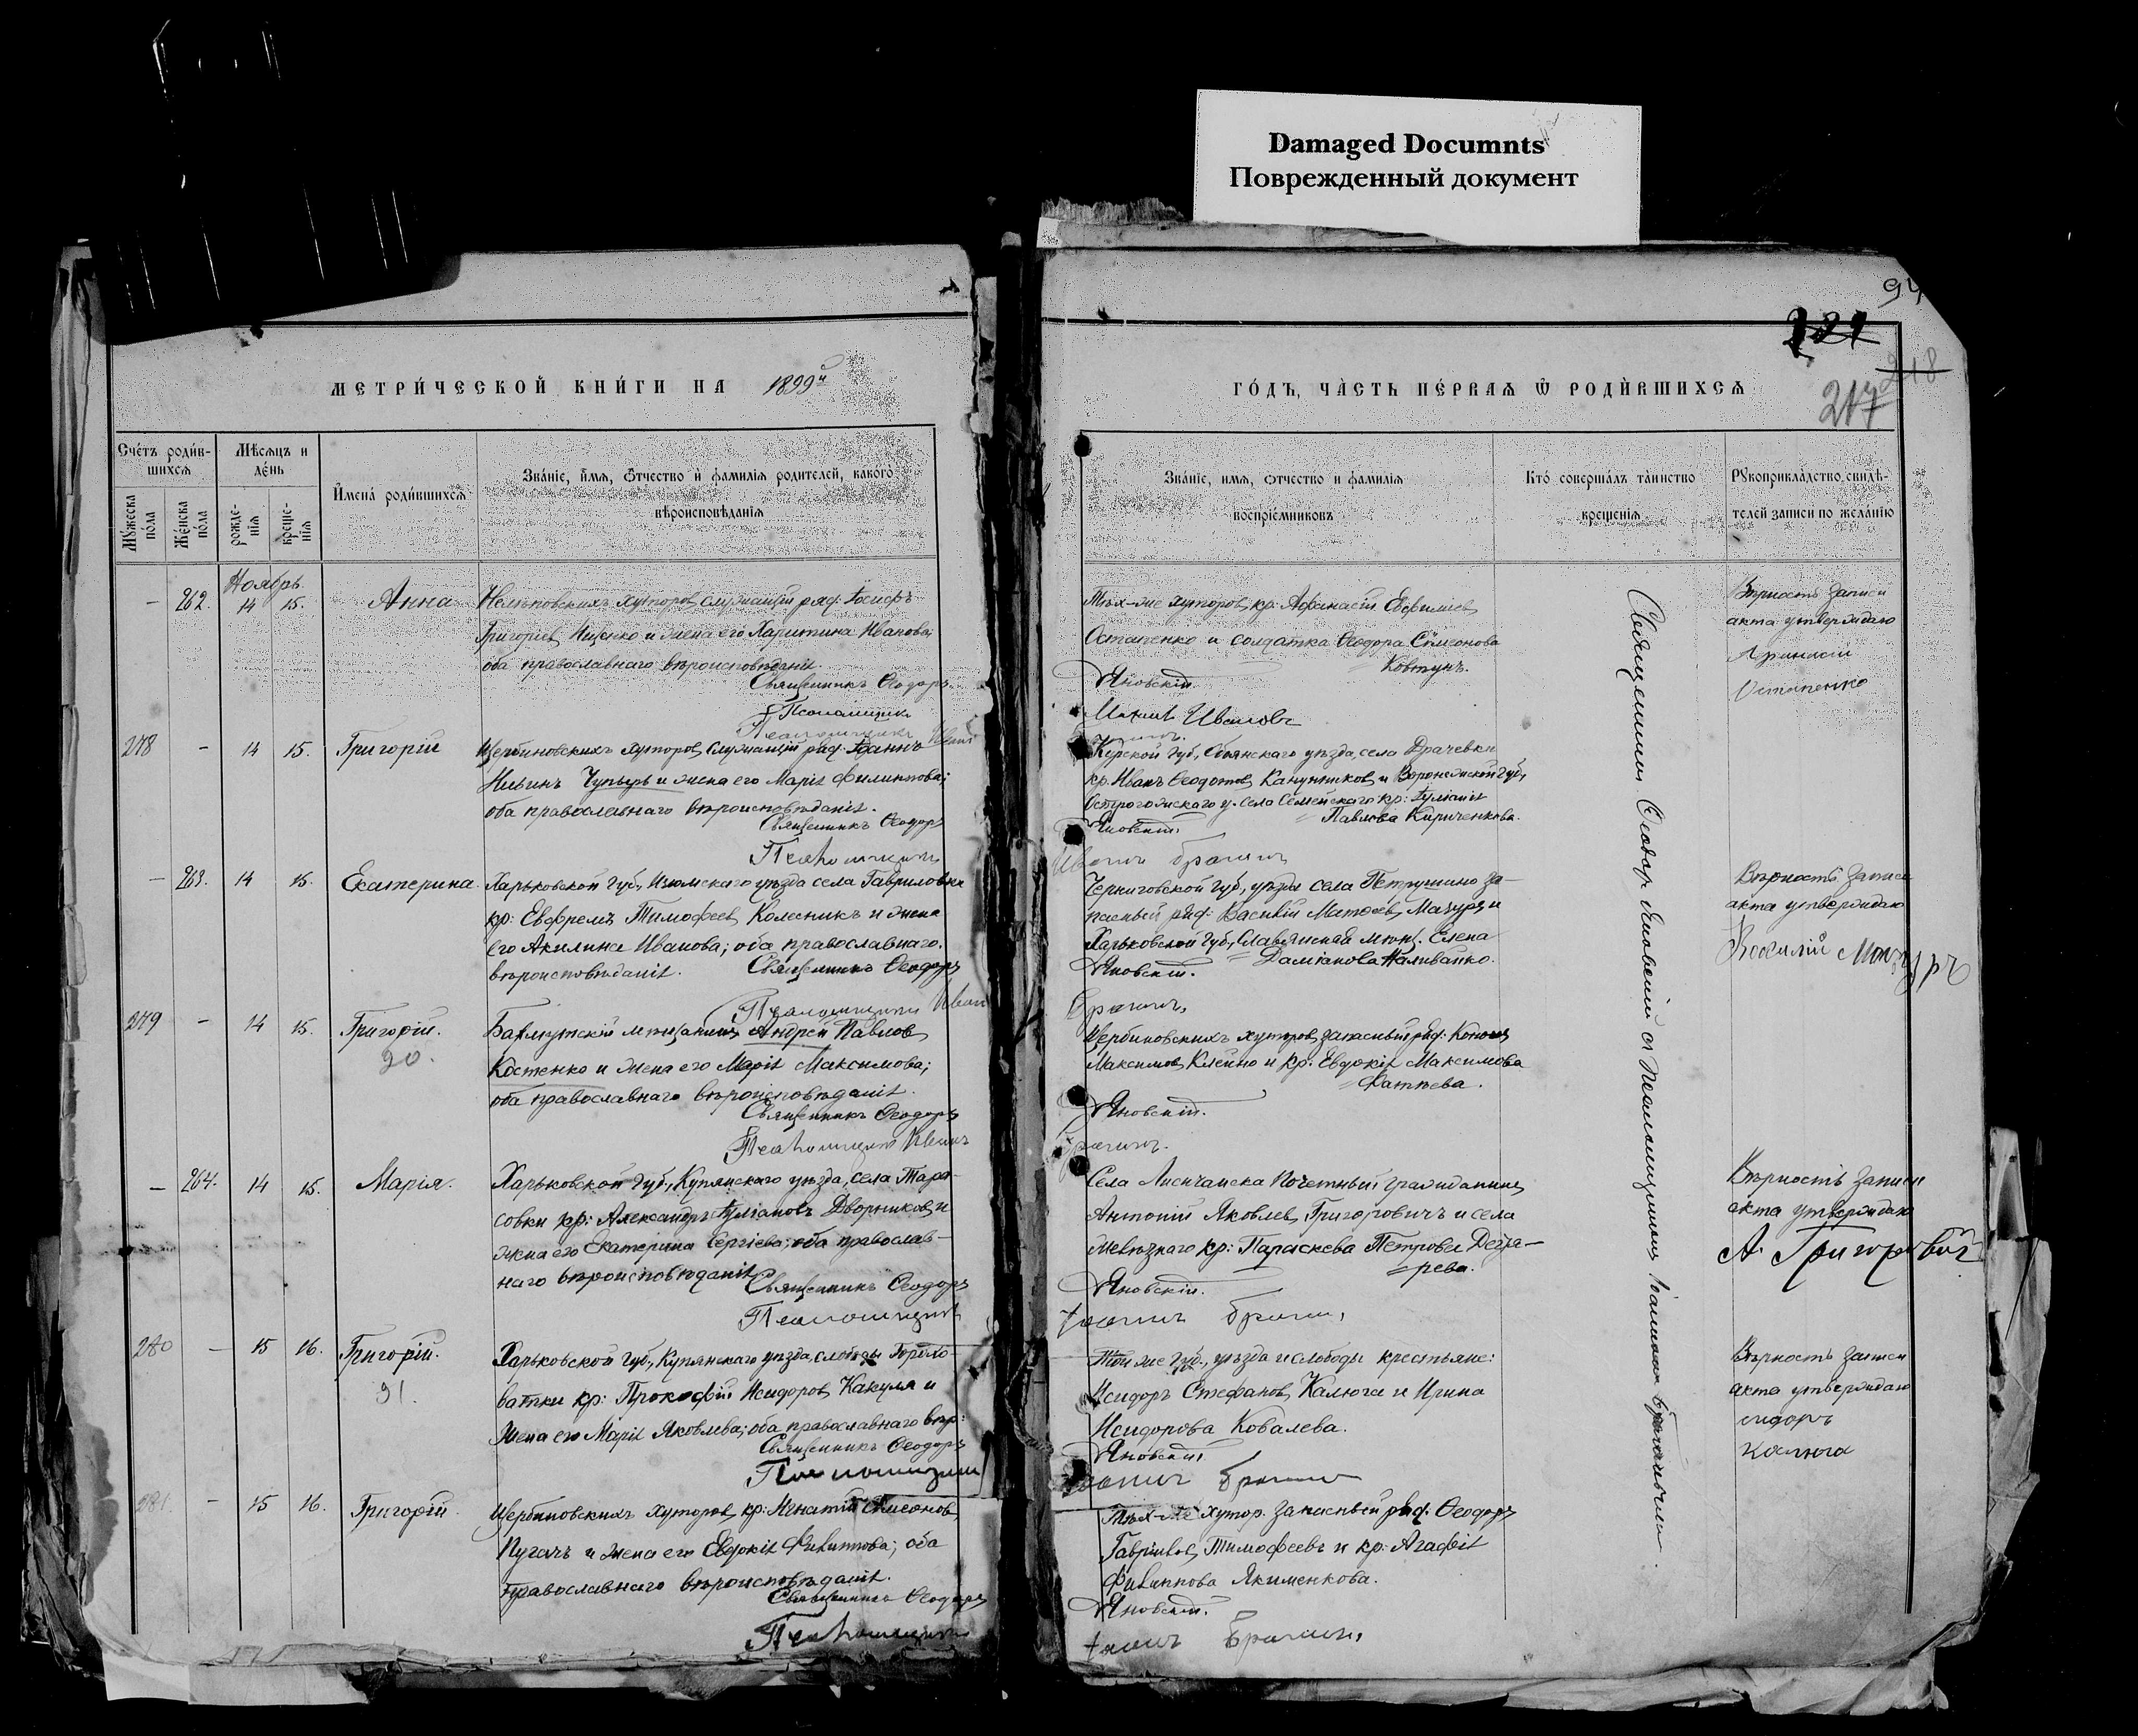 Damaged Documnts
Поврежденный документ
94
218
217
МЕТРИ́ЧЕСКОЙ КНИ́ГИ НА 1899й
ГО́ДЪ, ЧА̀СТЬ ПЕ́РВАѦ Ѿ РОДИ́ВШИХСѦ
Сче́тъ роди́в-
шихсѧ
Мѣ́сѧцъ и
де́нь
Мꙋ́жеска
по́ла
Же́нска
по́ла
рожде-
нїѧ
креще-
нїѧ
И҆мена̀ роди́вшихсѧ
Зва́нїе, и҆́мѧ, ѻ҆́тчество и҆ фами́лїѧ роди́телей, како́гѡ
вѣроисповѣ́данїѧ
Зва́нїе, имѧ, ѻтчество и фами́лїѧ
воспрїе́мниковъ
Кто̀ соверша́лъ та́инство
креще́нїѧ
Рꙋкоприкла́дство свидѣ́-
телей записи по жела́нїю
Ноябрь
— 262. 14 15. Анна
Нелеповскихъ хуторовъ, служащій ряд: Іосифъ
Григорьевъ Ищенко и жена его Харитина Иванова;
оба православнаго вѣроисповѣданія.
Священникъ Ѳеодоръ
Псаломщикъ
Тѣх-же хуторовъ, кр: Афанасій Евфиміевъ
Остапенко и солдатка Ѳеодора Сѵмеонова
Ковтунъ.
Яновскій.
Вѣрность записи
акта утверждаю
Афанасій
Остапенко
278 — 14 15. Григорій
Щербиновскихъ хуторовъ, служащій ряд: Іоаннъ
Ильинъ Чупырь и жена его Марія Филиппова;
оба православнаго вѣроисповѣданія.
Священникъ Ѳеодоръ
Псаломщикъ
Курской губ., Обоянскаго уѣзда, села Драчевки
кр. Иванъ Ѳеодотовъ Канунниковъ и Воронежской губ.,
Острогожскаго у. села Семейскаго кр: Іуліанія
Павлова Кириченкова.
Яновскій.
— 263. 14 15. Екатерина
Харьковской губ., Изюмскаго уѣзда села Гавриловки
кр: Евфремъ Тимофеевъ Колесникъ и жена
его Акилина Иванова; оба православнаго
вѣроисповѣданія. Священникъ Ѳеодоръ
Псаломщикъ Иван
Черниговской губ., уѣзда села Петрушино за-
пасный ряд: Василій Матѳеевъ Мачуръ и
Харьковской губ., Славянская мѣщ. Елена
Даміанова Наливайко.
Яновскій.
Вѣрность записи
акта утверждаю
Василій Мачуръ
279 — 14 15. Григорій.
90.
Бахмутскій мѣщанинъ Андрей Павловъ
Костенко и жена его Марія Максимова;
оба православнаго вѣроисповѣданія.
Священникъ Ѳеодоръ
Псаломщикъ Иванъ
Щербиновскихъ хуторовъ, запасный ряд: Кононъ
Максимовъ Клейно и кр: Евдокія Максимова
Фатѣева.
Яновскій.
— 264. 14 15. Марія.
Харьковской губ., Купянскаго уѣзда, села Тара-
совки кр: Александръ Іуліановъ Дворниковъ и
жена его Екатерина Сергіева; оба православ-
наго вѣроисповѣданія.
Священникъ Ѳеодоръ
Псаломщикъ
Села Лисичанска Почетный гражданинъ
Антоній Яковлевъ Григоровичъ и села
кр: Параскева Петрова Дегтя-
рева.
Яновскій.
Вѣрность записи
акта утверждаю
А. Григорович
280 — 15 16. Григорій.
91.
Харьковской губ., Купянскаго уѣзда, слободы
кр: Прокофій Исидоровъ Какуля и
жена его Марія Яковлева; оба православнаго вѣр:
Священникъ Ѳеодоръ
Псаломщикъ
Той же губ., уѣзда и слободы крестьяне:
Исидоръ Стефановъ Калюга и Ирина
Исидорова Ковалева.
Яновскій.
Вѣрность записи
акта утверждаю
сидоръ
Калюга
281. — 15 16. Григорій
Щербиновскихъ хуторовъ, кр: Игнатій Сѵмеоновъ
Пугачъ и жена его Евдокія Филиппова; оба
православнаго вѣроисповѣданія.
Священникъ Ѳеодоръ
Псаломщикъ
Тѣх-же хутор. запасный ряд: Ѳеодоръ
Гавріиловъ Тимофеевъ и кр: Агафія
Филиппова Якименкова.
Яновскій.
Священникъ Ѳеодоръ Яновскій съ Псаломщикомъ Іоанномъ